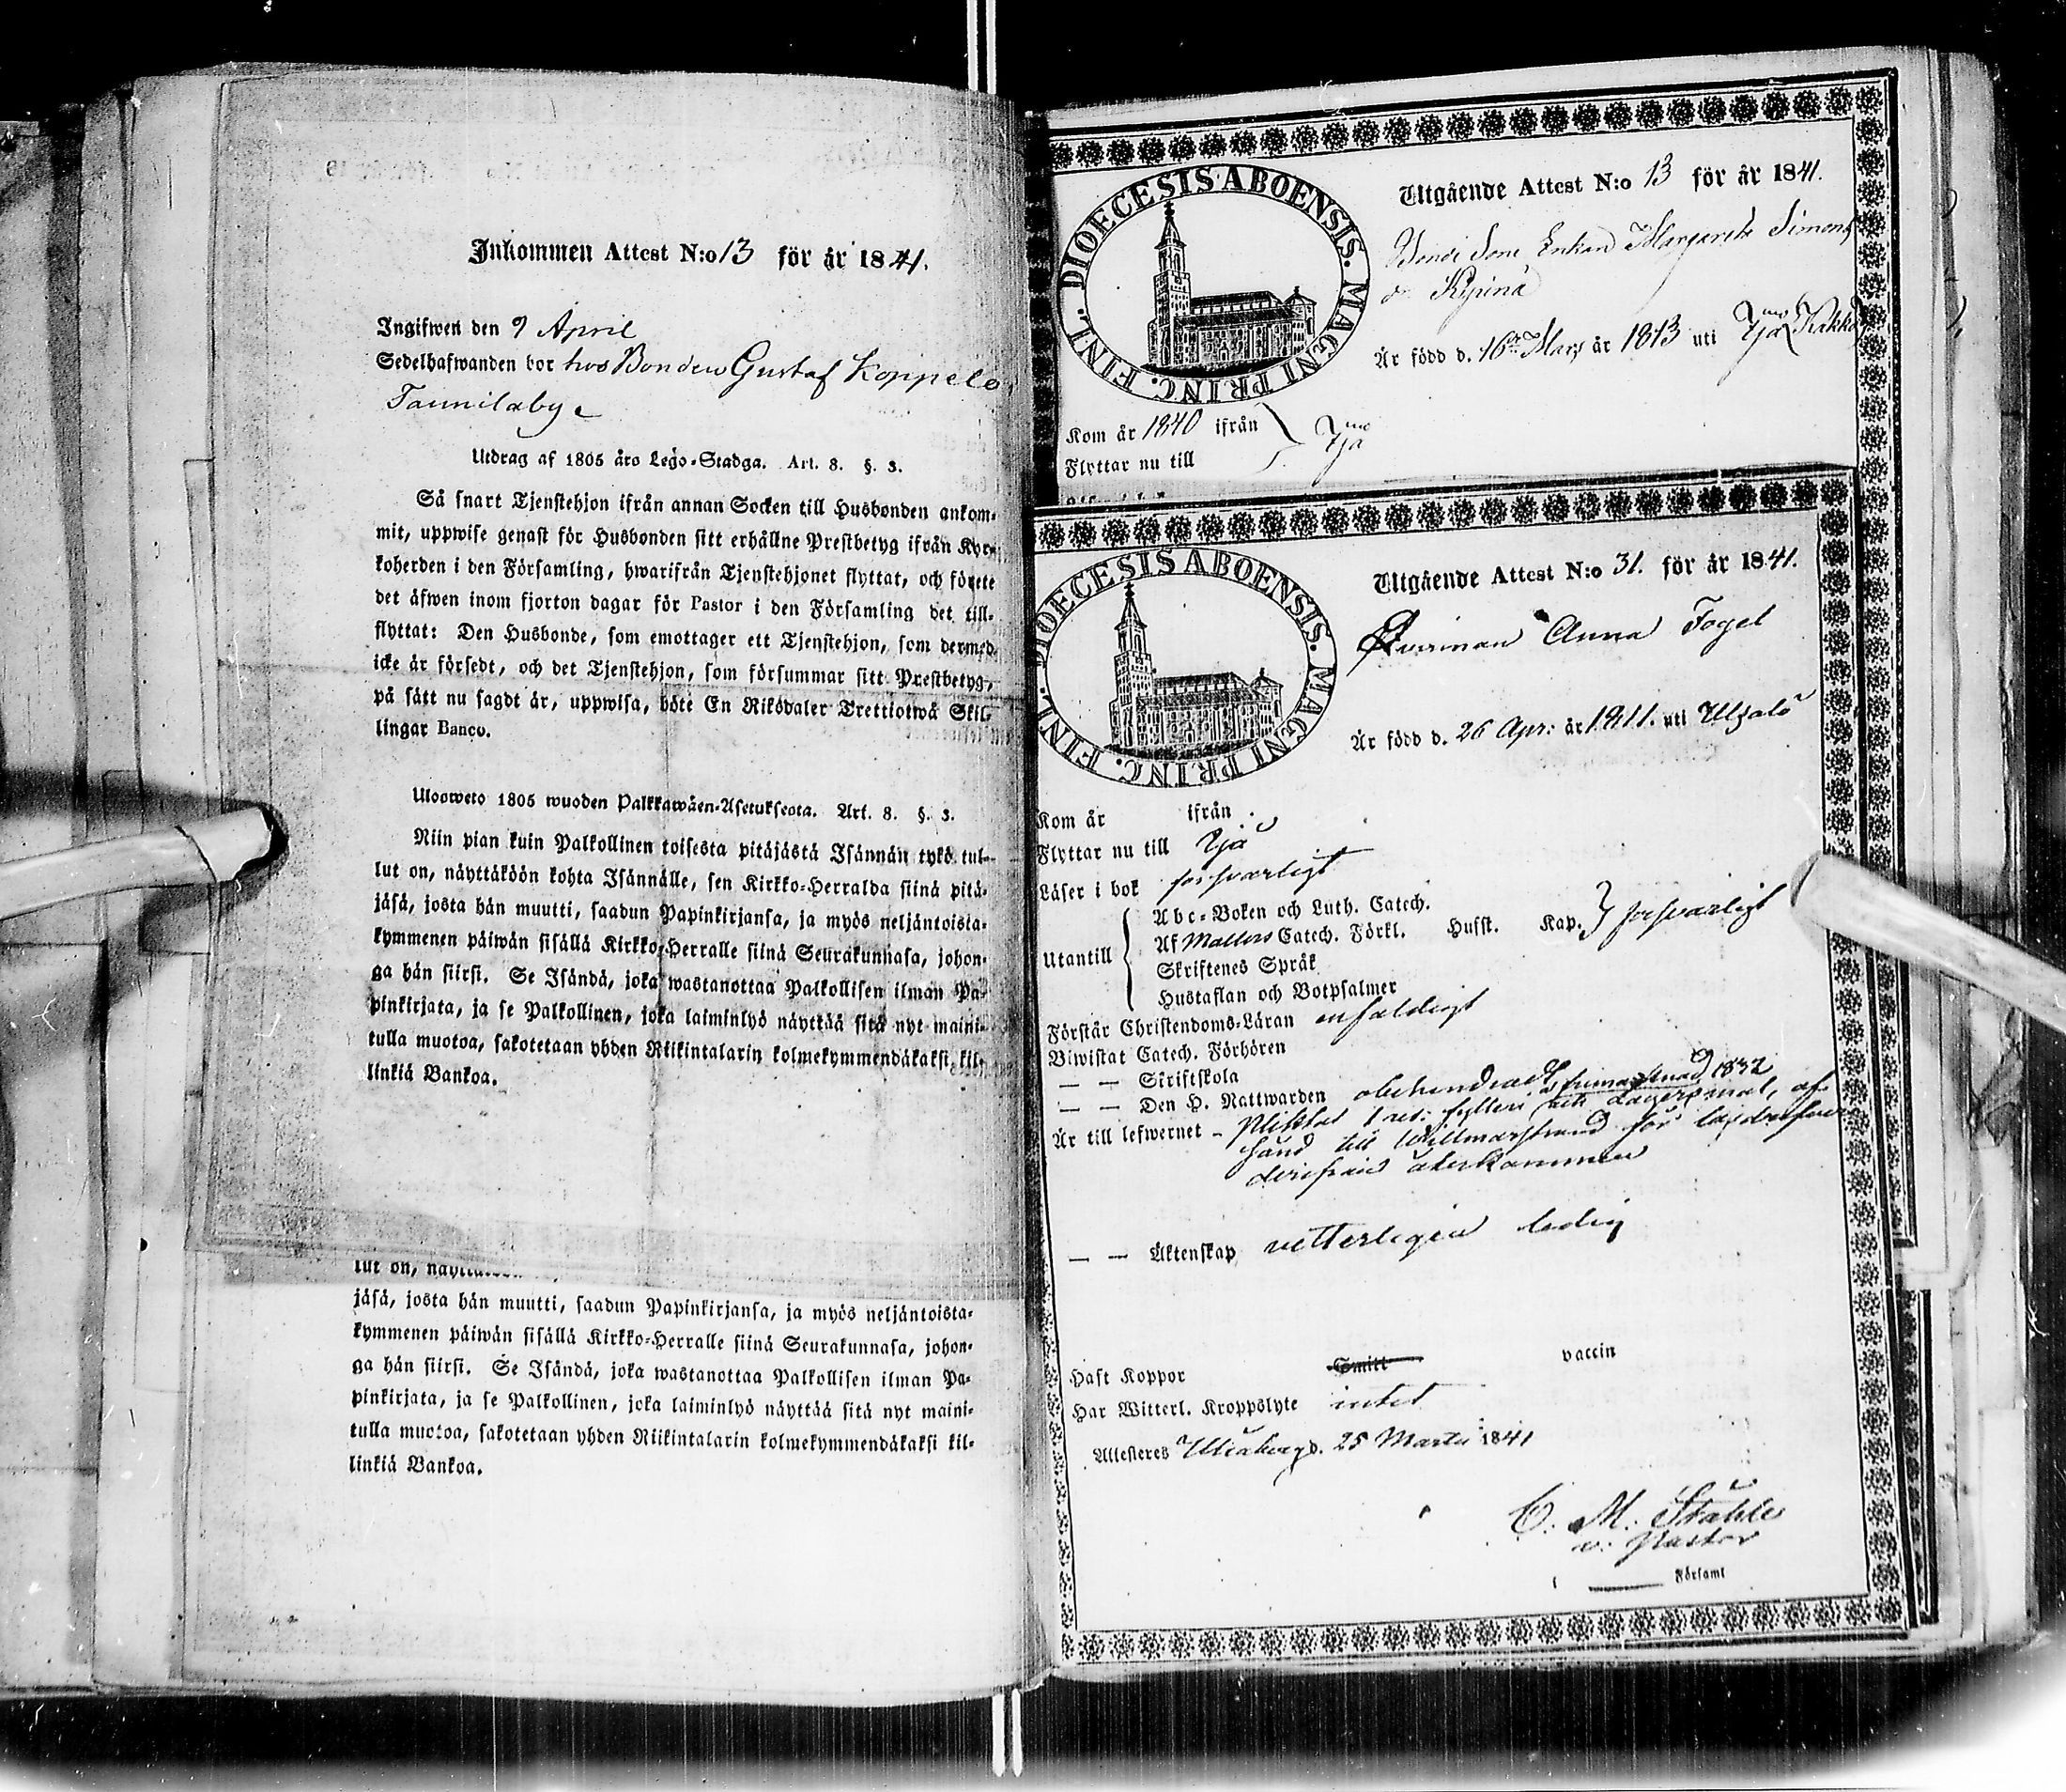 Inkommen Attest N:o 13 för år 1841.
Ingifwen den 9 April
Sedelhafwanden bor hos Bonden Gustaf Koppelo
Taunilaby
Utdrag af 1805 års Lego-Stadga. Art. 8. §. 3.
Så snart Tjenstehjon ifrån annan Socken till Husbonden ankom-
mit, uppwise genast för Husbonden sitt erhållne Prestbetyg ifrån Kyr-
koherden i den Församling, hwarifrån Tjenstehjonet flyttat, och förete
det äfwen inom fjorton dagar för Pastor i den Församling det till-
flyttat: Den Husbonde, som emottager ett Tjenstehjon, som dermed
icke är försedt, och det Tjenstehjon, som försummar sitt Prestbetyg,
på sätt nu sagdt är, uppwisa, böte En Riksdaler Trettiotwå Skil-
lingar Banco.
Ulosweto 1805 wuoden Palkkawäen-Asetuksesta. Art. 8. §. 3.
Niin pian kuin Palkollinen toisesta pitäjästä Isännän tykö tul-
lut on, näyttäköön kohta Isännälle, sen Kirkko-Herralda siinä pitä-
jäsä, josta hän muutti, saadun Papinkirjansa, ja myös neljäntoista-
kymmenen päiwän sisällä Kirkko-Herralle siinä Seurakunnasa, johon-
ga hän siirsi. Se Isändä, joka wastanottaa Palkollisen ilman Pa-
pinkirjata, ja se Palkollinen, joka laiminlyö näyttää sitä nyt maini-
tulla muotoa, sakotetaan yhden Riikintalarin kolmekymmendäkaksi kil-
linkiä Bankoa.
lut on,
jäsä, josta hän muutti, saadun Papinkirjansa, ja myös neljäntoista-
kymmenen päiwän sisällä Kirkko-Herralle siinä Seurakunnasa, johon-
ga hän siirsi. Se Isändä, joka wastanottaa Palkollisen ilman Pa-
pinkirjata, ja se Palkollinen, joka laiminlyö näyttää sitä nyt maini-
tulla muotoa, sakotetaan yhden Riikintalarin kolmekymmendäkaksi kil-
linkiä Bankoa.
DIOECESIS ABOENSIS. MAGNI PRINC. FINL.
Utgående Attest N:o 13 för år 1841.
Enkan Margareta Simons
dr
Är född d. 16 Mars år 1813 uti
Kom år 1840 ifrån
Flyttar nu till
DIOECESIS ABOENSIS. MAGNI PRINC. FINL.
Utgående Attest N:o 31. för år 1841.
Qvinnan Anna Fogel
Är född d. 26 Apr: år 1811. uti Ulfsö
Kom år ifrån
Flyttar nu till
Läser i bok försvarligt
Utantill
Abc-Boken och Luth. Catech.
Af Möllers Catech. Förkl. Husst. Kap. försvarligt
Skriftenes Språk
Hustaflan och Botpsalmer
Förstår Christendoms-Läran enfaldigt
Biwistat Catech. Förhören
— — Skriftskola
— — Den H. Nattwarden obehindradt 1832
Är till lefwernet -
till Willmanstrand för
derifrån återkommen
— — Äktenskap vetterligen ledig
Haft Koppor Smitt vaccin
Har Witterl. Kroppslyte intet
Attesteres d. 25 Martii 1841
C. M. Ståhle
v. Pastor
i Församl